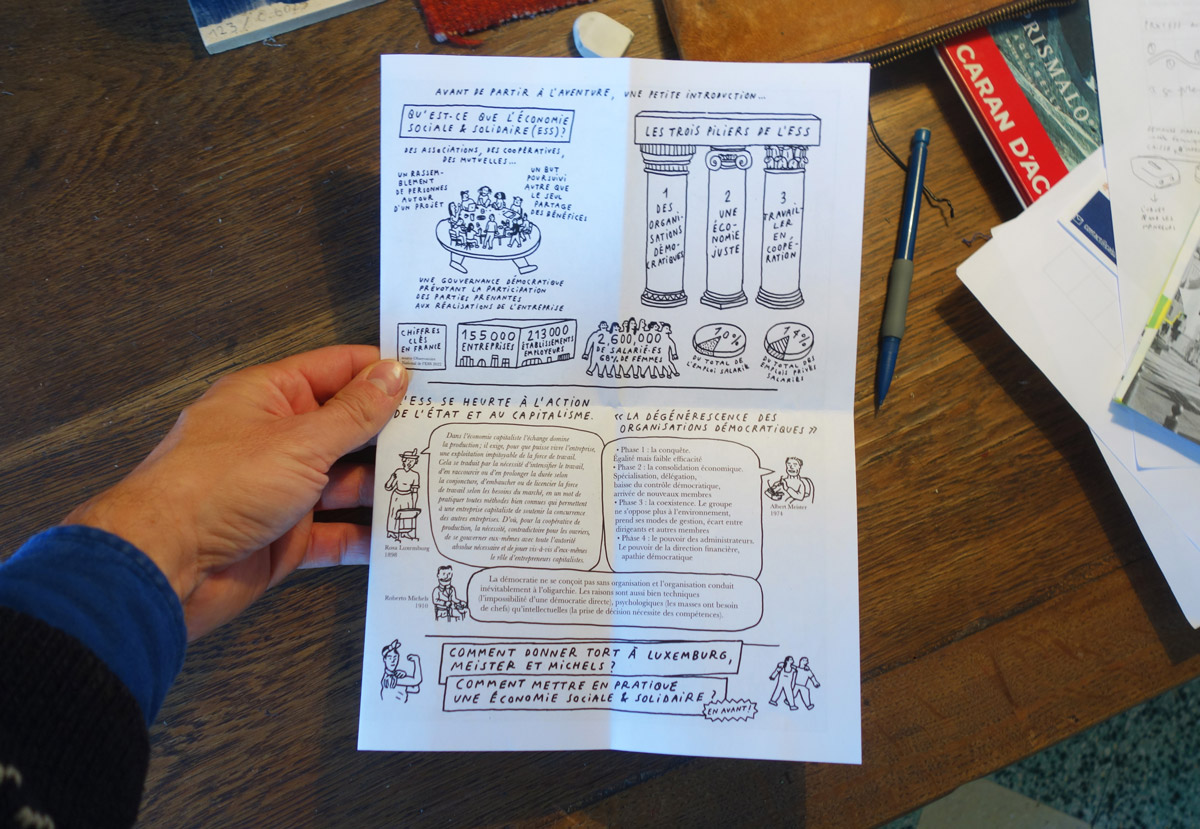 123/C-6073
AVANT DE PARTIR À L'AVENTURE, UNE PETITE INTRODUCTION...
QU'EST-CE QUE L'ÉCONOMIE
SOCIALE & SOLIDAIRE (ESS)?
DES ASSOCIATIONS, DES COOPÉRATIVES,
DES MUTUELLES...
UN RASSEM-
BLEMENT
DE PERSONNES
AUTOUR
D'UN PROJET
UN BUT
POURSUIVI
AUTRE QUE
LE SEUL
PARTAGE
DES BÉNÉFICES
UNE GOUVERNANCE DÉMOCRATIQUE
PRÉVOYANT LA PARTICIPATION
DES PARTIES PRENANTES
AUX RÉALISATIONS DE L'ENTREPRISE
LES TROIS PILIERS DE L'ESS
1
DES
ORGANI-
SATIONS
DÉMO-
CRATIQUES
2
UNE
ÉCO-
NOMIE
JUSTE
3
TRAVAIL-
LER
EN
COOPÉ-
RATION
CHIFFRES
CLÉS
EN FRANCE
155000
ENTREPRISES
213000
ÉTABLISSEMENTS
EMPLOYEURS
2,600,000
DE SALARIÉ·ES
68% DE FEMMES
10%
DU TOTAL DE
L'EMPLOI SALARIÉ
14%
DU TOTAL DES
EMPLOIS PRIVÉS
SALARIÉS
L'ESS SE HEURTE À L'ACTION
DE L'ÉTAT ET AU CAPITALISME.
Dans l'économie capitaliste l'échange domine
la production ; il exige, pour que puisse vivre l'entreprise,
une exploitation impitoyable de la force de travail.
Cela se traduit par la nécessité d'intensifier le travail,
d'en raccourcir ou d'en prolonger la durée selon
la conjoncture, d'embaucher ou de licencier la force
de travail selon les besoins du marché, en un mot de
pratiquer toutes méthodes bien connues qui permettent
à une entreprise capitaliste de soutenir la concurrence
des autres entreprises. D'où, pour la coopérative de
production, la nécessité, contradictoire pour les ouvriers,
de se gouverner eux-mêmes avec toute l'autorité
absolue nécessaire et de jouer vis-à-vis d'eux-mêmes
le rôle d'entrepreneurs capitalistes.
Rosa Luxemburg
1898
« LA DÉGÉNÉRESCENCE DES
ORGANISATIONS DÉMOCRATIQUES »
• Phase 1 : la conquête.
Égalité mais faible efficacité
• Phase 2 : la consolidation économique.
Spécialisation, délégation,
baisse du contrôle démocratique,
arrivée de nouveaux membres
• Phase 3 : la coexistence. Le groupe
ne s'oppose plus à l'environnement,
prend ses modes de gestion, écart entre
dirigeants et autres membres
• Phase 4 : le pouvoir des administrateurs.
Le pouvoir de la direction financière,
apathie démocratique
Albert Meister
1974
Roberto Michels
1910
La démocratie ne se conçoit pas sans organisation et l'organisation conduit
inévitablement à l'oligarchie. Les raisons sont aussi bien techniques
(l'impossibilité d'une démocratie directe), psychologiques (les masses ont besoin
de chefs) qu'intellectuelles (la prise de décision nécessite des compétences).
COMMENT DONNER TORT À LUXEMBURG,
MEISTER ET MICHELS?
COMMENT METTRE EN PRATIQUE
UNE ÉCONOMIE SOCIALE & SOLIDAIRE?
EN AVANT!
CARAN D'AC
RISMALO